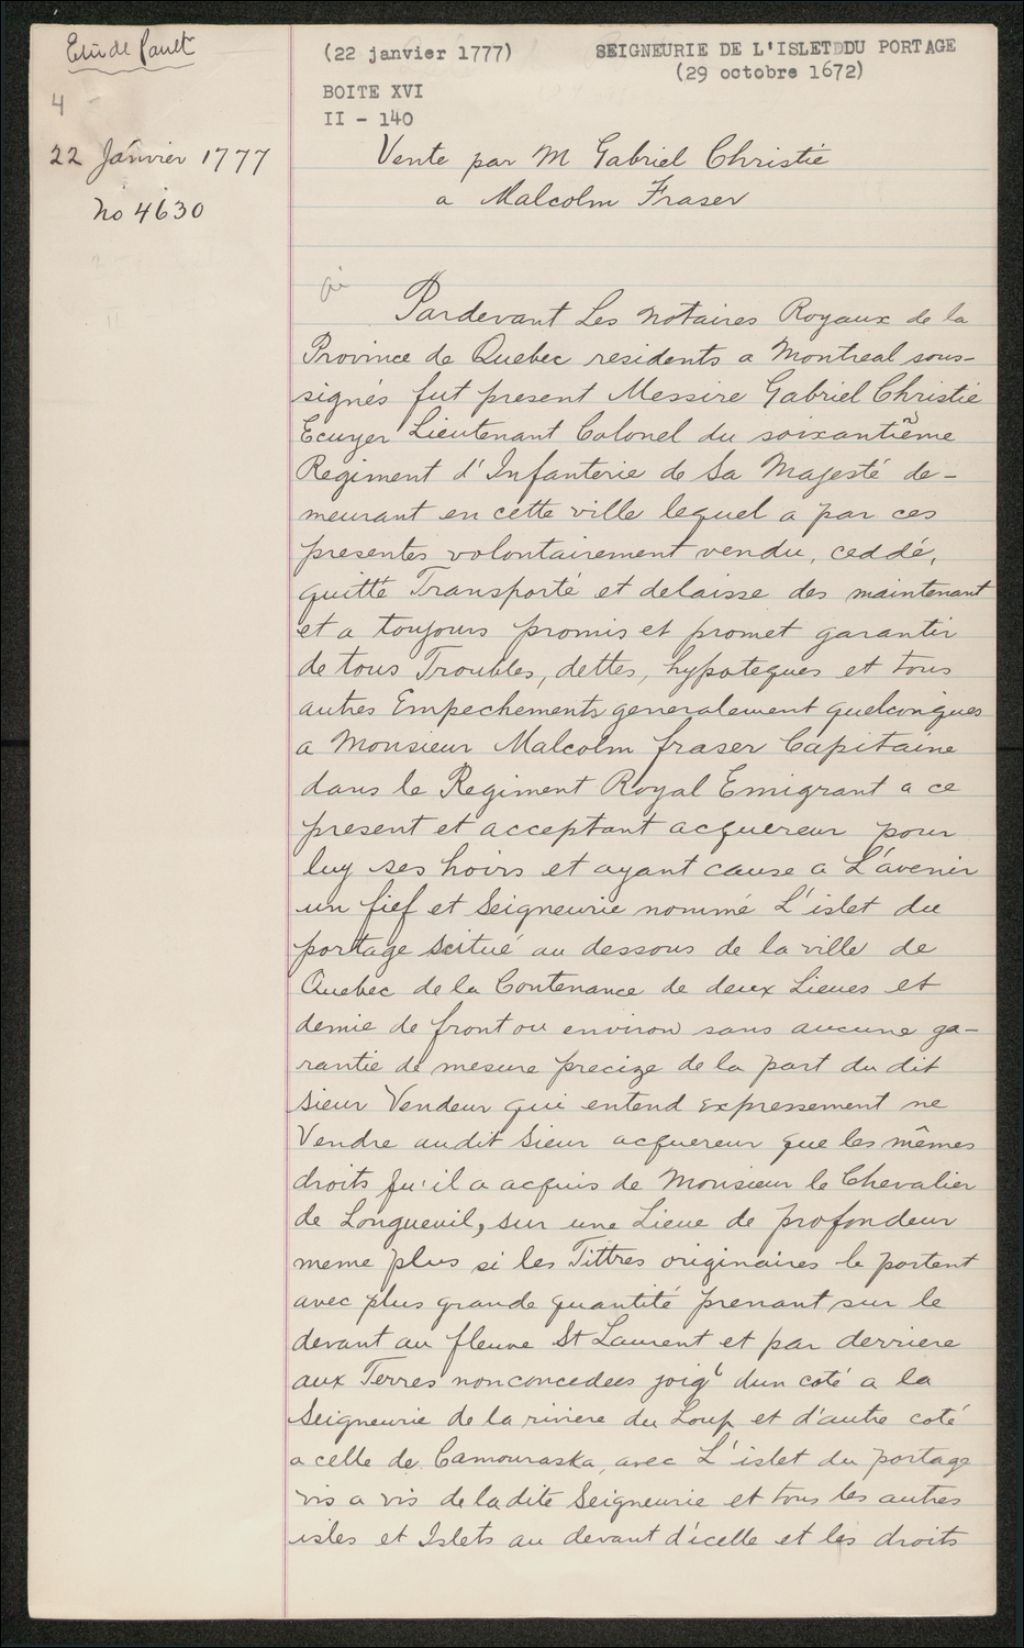 Etude Panet
4
22 Janvier 1777
No 4630
(22 janvier 1777)
SEIGNEURIE DE L'ISLET DU PORTAGE
(29 octobre 1672)
BOITE XVI
II - 140
Vente par M Gabriel Christie
a Malcolm Fraser
Pardevant Les Notaires Royaux de la
Province de Quebec residents a Montreal sous-
signés fut present Messire Gabriel Christie
Ecuyer Lieutenant Colonel du soixantième
Regiment d'Infanterie de Sa Majesté de-
meurant en cette ville lequel a par ces
presentes volontairement vendu, ceddé,
quitté Transporté et delaisse des maintenant
et a toujours promis et promet garantir
de tous Troubles, dettes, hypoteques et tous
autres Empechements generalement quelconques
a Monsieur Malcolm fraser Capitaine
dans le Regiment Royal Emigrant a ce
present et acceptant acquereur pour
luy ses hoirs et ayant cause a L'avenir
un fief et Seigneurie nommé L'islet du
portage scitué au dessous de la ville de
Quebec de la Contenance de deux Lieues et
demie de front ou environ sans aucune ga-
rantie de mesure precize de la part du dit
Sieur Vendeur qui entend expressement ne
Vendre audit Sieur acquereur que les mêmes
droits qu'il a acquis de Monsieur le Chevalier
de Longueuil, sur une Lieue de profondeur
meme plus si les Tittres originaires le portent
avec plus grande quantité prenant sur le
devant au fleuve St Laurent et par derriere
aux Terres non concedees joigt dun coté a la
Seigneurie de la riviere du Loup et d'autre coté
a celle de Camouraska, avec L'islet du portage
vis a vis de ladite Seigneurie et tous les autres
isles et Islets au devant d'icelle et les droits